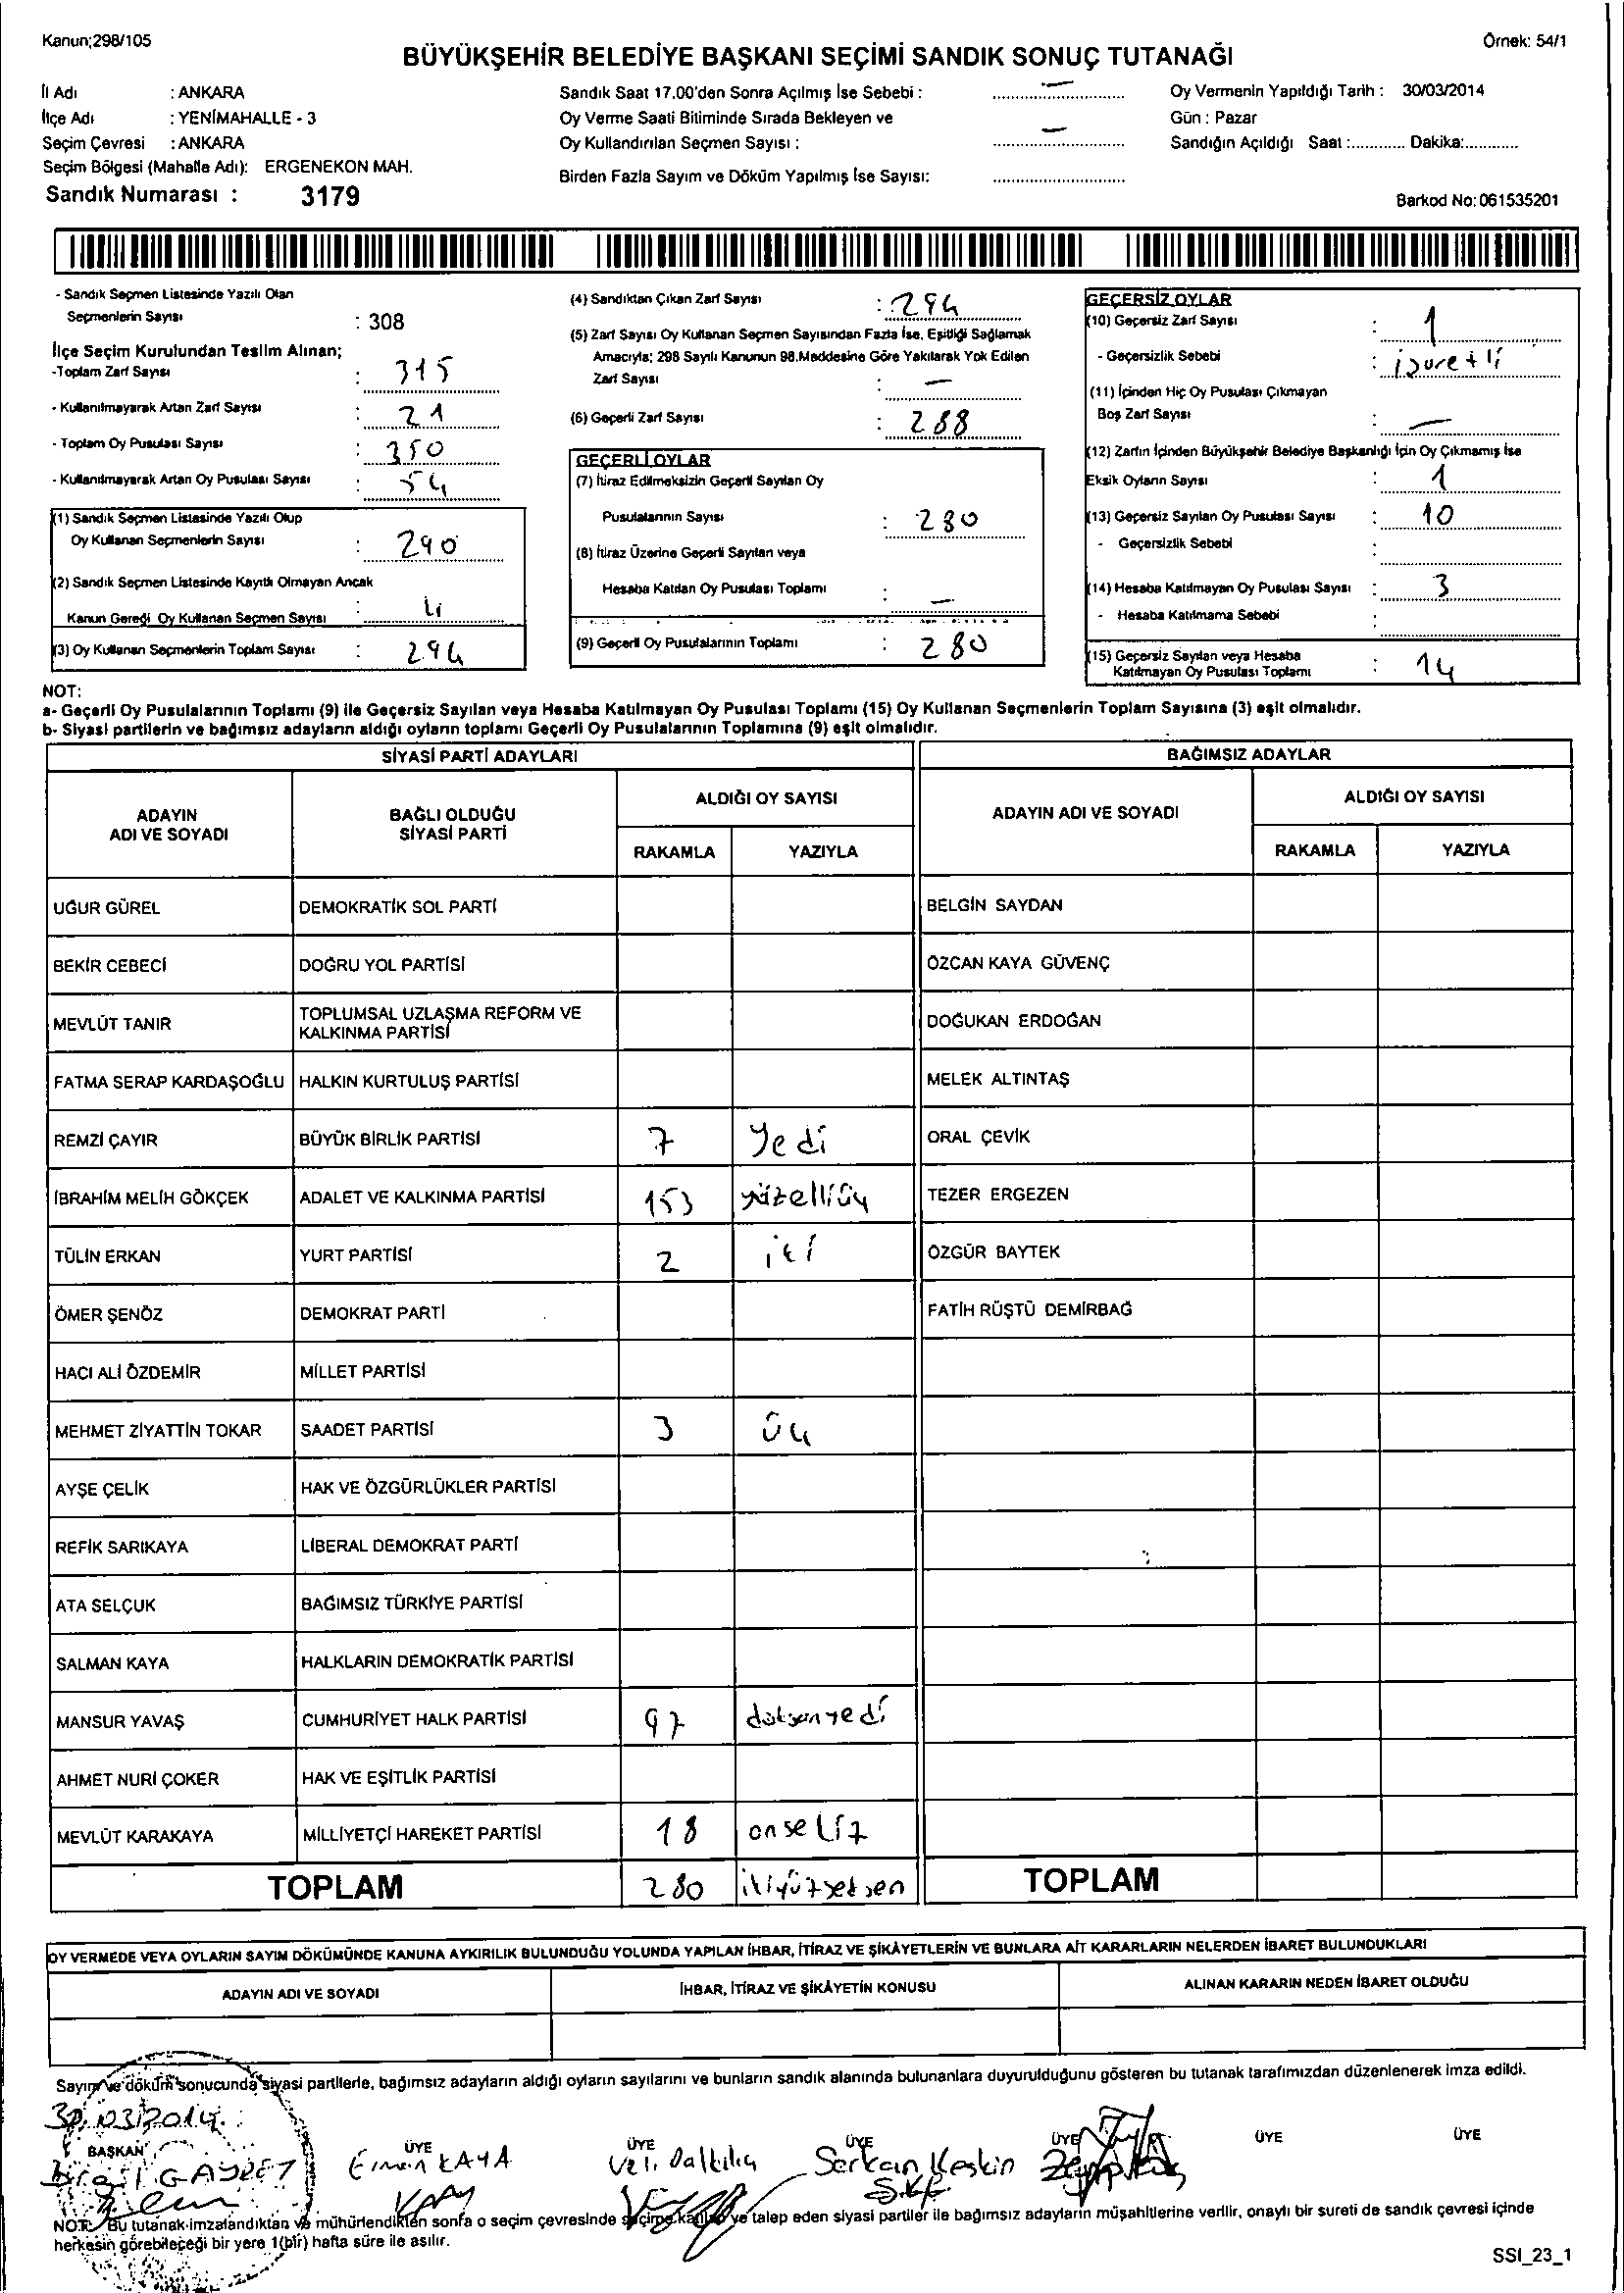 Kanun;298/105
Örnek: 54/1
BÜYÜKŞEHİR BELEDİYE BAŞKANI SEÇİMİ SANDIK SONUÇ TUTANAĞI
İl Adı : ANKARA
İlçe Adı : YENİMAHALLE - 3
Seçim Çevresi : ANKARA
Seçim Bölgesi (Mahalle Adı): ERGENEKON MAH.
Sandık Numarası : 3179
Sandık Saat 17.00'den Sonra Açılmış İse Sebebi : —
Oy Verme Saati Bitiminde Sırada Bekleyen ve
Oy Kullandırılan Seçmen Sayısı : —
Birden Fazla Sayım ve Döküm Yapılmış İse Sayısı:
Oy Vermenin Yapıldığı Tarih : 30/03/2014
Gün : Pazar
Sandığın Açıldığı Saat :............ Dakika:............
Barkod No:061535201
- Sandık Seçmen Listesinde Yazılı Olan
Seçmenlerin Sayısı : 308
İlçe Seçim Kurulundan Teslim Alınan;
-Toplam Zarf Sayısı : 315
- Kullanılmayarak Artan Zarf Sayısı : 21
- Toplam Oy Pusulası Sayısı : 350
- Kullanılmayarak Artan Oy Pusulası Sayısı : 54
(1) Sandık Seçmen Listesinde Yazılı Olup
Oy Kullanan Seçmenlerin Sayısı : 290
(2) Sandık Seçmen Listesinde Kayıtlı Olmayan Ancak
Kanun Gereği Oy Kullanan Seçmen Sayısı : 4
(3) Oy Kullanan Seçmenlerin Toplam Sayısı : 294
(4) Sandıktan Çıkan Zarf Sayısı : 294
(5) Zarf Sayısı Oy Kullanan Seçmen Sayısından Fazla İse, Eşitliği Sağlamak
Amacıyla; 298 Sayılı Kanunun 98.Maddesine Göre Yakılarak Yok Edilen
Zarf Sayısı : —
(6) Geçerli Zarf Sayısı : 288
GEÇERLİ OYLAR
(7) İtiraz Edilmeksizin Geçerli Sayılan Oy
Pusulalarının Sayısı : 280
(8) İtiraz Üzerine Geçerli Sayılan veya
Hesaba Katılan Oy Pusulası Toplamı : —
(9) Geçerli Oy Pusulalarının Toplamı : 280
GEÇERSİZ OYLAR
(10) Geçersiz Zarf Sayısı : 1
- Geçersizlik Sebebi : işaretli
(11) İçinden Hiç Oy Pusulası Çıkmayan
Boş Zarf Sayısı : —
(12) Zarfın İçinden Büyükşehir Belediye Başkanlığı İçin Oy Çıkmamış İse
Eksik Oyların Sayısı : 1
(13) Geçersiz Sayılan Oy Pusulası Sayısı : 10
- Geçersizlik Sebebi :
(14) Hesaba Katılmayan Oy Pusulası Sayısı : 3
- Hesaba Katılmama Sebebi :
(15) Geçersiz Sayılan veya Hesaba
Katılmayan Oy Pusulası Toplamı : 14
NOT:
a- Geçerli Oy Pusulalarının Toplamı (9) ile Geçersiz Sayılan veya Hesaba Katılmayan Oy Pusulası Toplamı (15) Oy Kullanan Seçmenlerin Toplam Sayısına (3) eşit olmalıdır.
b- Siyasi partilerin ve bağımsız adayların aldığı oyların toplamı Geçerli Oy Pusulalarının Toplamına (9) eşit olmalıdır.
SİYASİ PARTİ ADAYLARI
BAĞIMSIZ ADAYLAR
ADAYIN ADI VE SOYADI
BAĞLI OLDUĞU SİYASİ PARTİ
ALDIĞI OY SAYISI
RAKAMLA YAZIYLA
ADAYIN ADI VE SOYADI
ALDIĞI OY SAYISI
RAKAMLA YAZIYLA
UĞUR GÜREL DEMOKRATİK SOL PARTİ BELGİN SAYDAN
BEKİR CEBECİ DOĞRU YOL PARTİSİ ÖZCAN KAYA GÜVENÇ
MEVLÜT TANIR TOPLUMSAL UZLAŞMA REFORM VE KALKINMA PARTİSİ DOĞUKAN ERDOĞAN
FATMA SERAP KARDAŞOĞLU HALKIN KURTULUŞ PARTİSİ MELEK ALTINTAŞ
REMZİ ÇAYIR BÜYÜK BİRLİK PARTİSİ 7 Yedi ORAL ÇEVİK
İBRAHİM MELİH GÖKÇEK ADALET VE KALKINMA PARTİSİ 153 yüzelliüç TEZER ERGEZEN
TÜLİN ERKAN YURT PARTİSİ 2 iki ÖZGÜR BAYTEK
ÖMER ŞENÖZ DEMOKRAT PARTİ FATİH RÜŞTÜ DEMİRBAĞ
HACI ALİ ÖZDEMİR MİLLET PARTİSİ
MEHMET ZİYATTİN TOKAR SAADET PARTİSİ 3 üç
AYŞE ÇELİK HAK VE ÖZGÜRLÜKLER PARTİSİ
REFİK SARIKAYA LİBERAL DEMOKRAT PARTİ
ATA SELÇUK BAĞIMSIZ TÜRKİYE PARTİSİ
SALMAN KAYA HALKLARIN DEMOKRATİK PARTİSİ
MANSUR YAVAŞ CUMHURİYET HALK PARTİSİ 97 doksanyedi
AHMET NURİ ÇOKER HAK VE EŞİTLİK PARTİSİ
MEVLÜT KARAKAYA MİLLİYETÇİ HAREKET PARTİSİ 18 onsekiz
TOPLAM 280 ikiyüzseksen TOPLAM
OY VERMEDE VEYA OYLARIN SAYIM DÖKÜMÜNDE KANUNA AYKIRILIK BULUNDUĞU YOLUNDA YAPILAN İHBAR, İTİRAZ VE ŞİKÂYETLERİN VE BUNLARA AİT KARARLARIN NELERDEN İBARET BULUNDUKLARI
ADAYIN ADI VE SOYADI İHBAR, İTİRAZ VE ŞİKÂYETİN KONUSU ALINAN KARARIN NEDEN İBARET OLDUĞU
Sayım ve döküm sonucunda siyasi partilerle, bağımsız adayların aldığı oyların sayılarını ve bunların sandık alanında bulunanlara duyurulduğunu gösteren bu tutanak tarafımızdan düzenlenerek imza edildi.
30.03.2014
BAŞKAN ÜYE ÜYE ÜYE ÜYE ÜYE ÜYE
GAYRET KAYA Veli Dalkılıç Serkan Keskin
NOT: Bu tutanak imzalandıktan ve mühürlendikten sonra o seçim çevresinde seçime katılan ve talep eden siyasi partiler ile bağımsız adayların müşahitlerine verilir, onaylı bir sureti de sandık çevresi içinde
herkesin görebileceği bir yere 1(bir) hafta süre ile asılır.
SSI_23_1